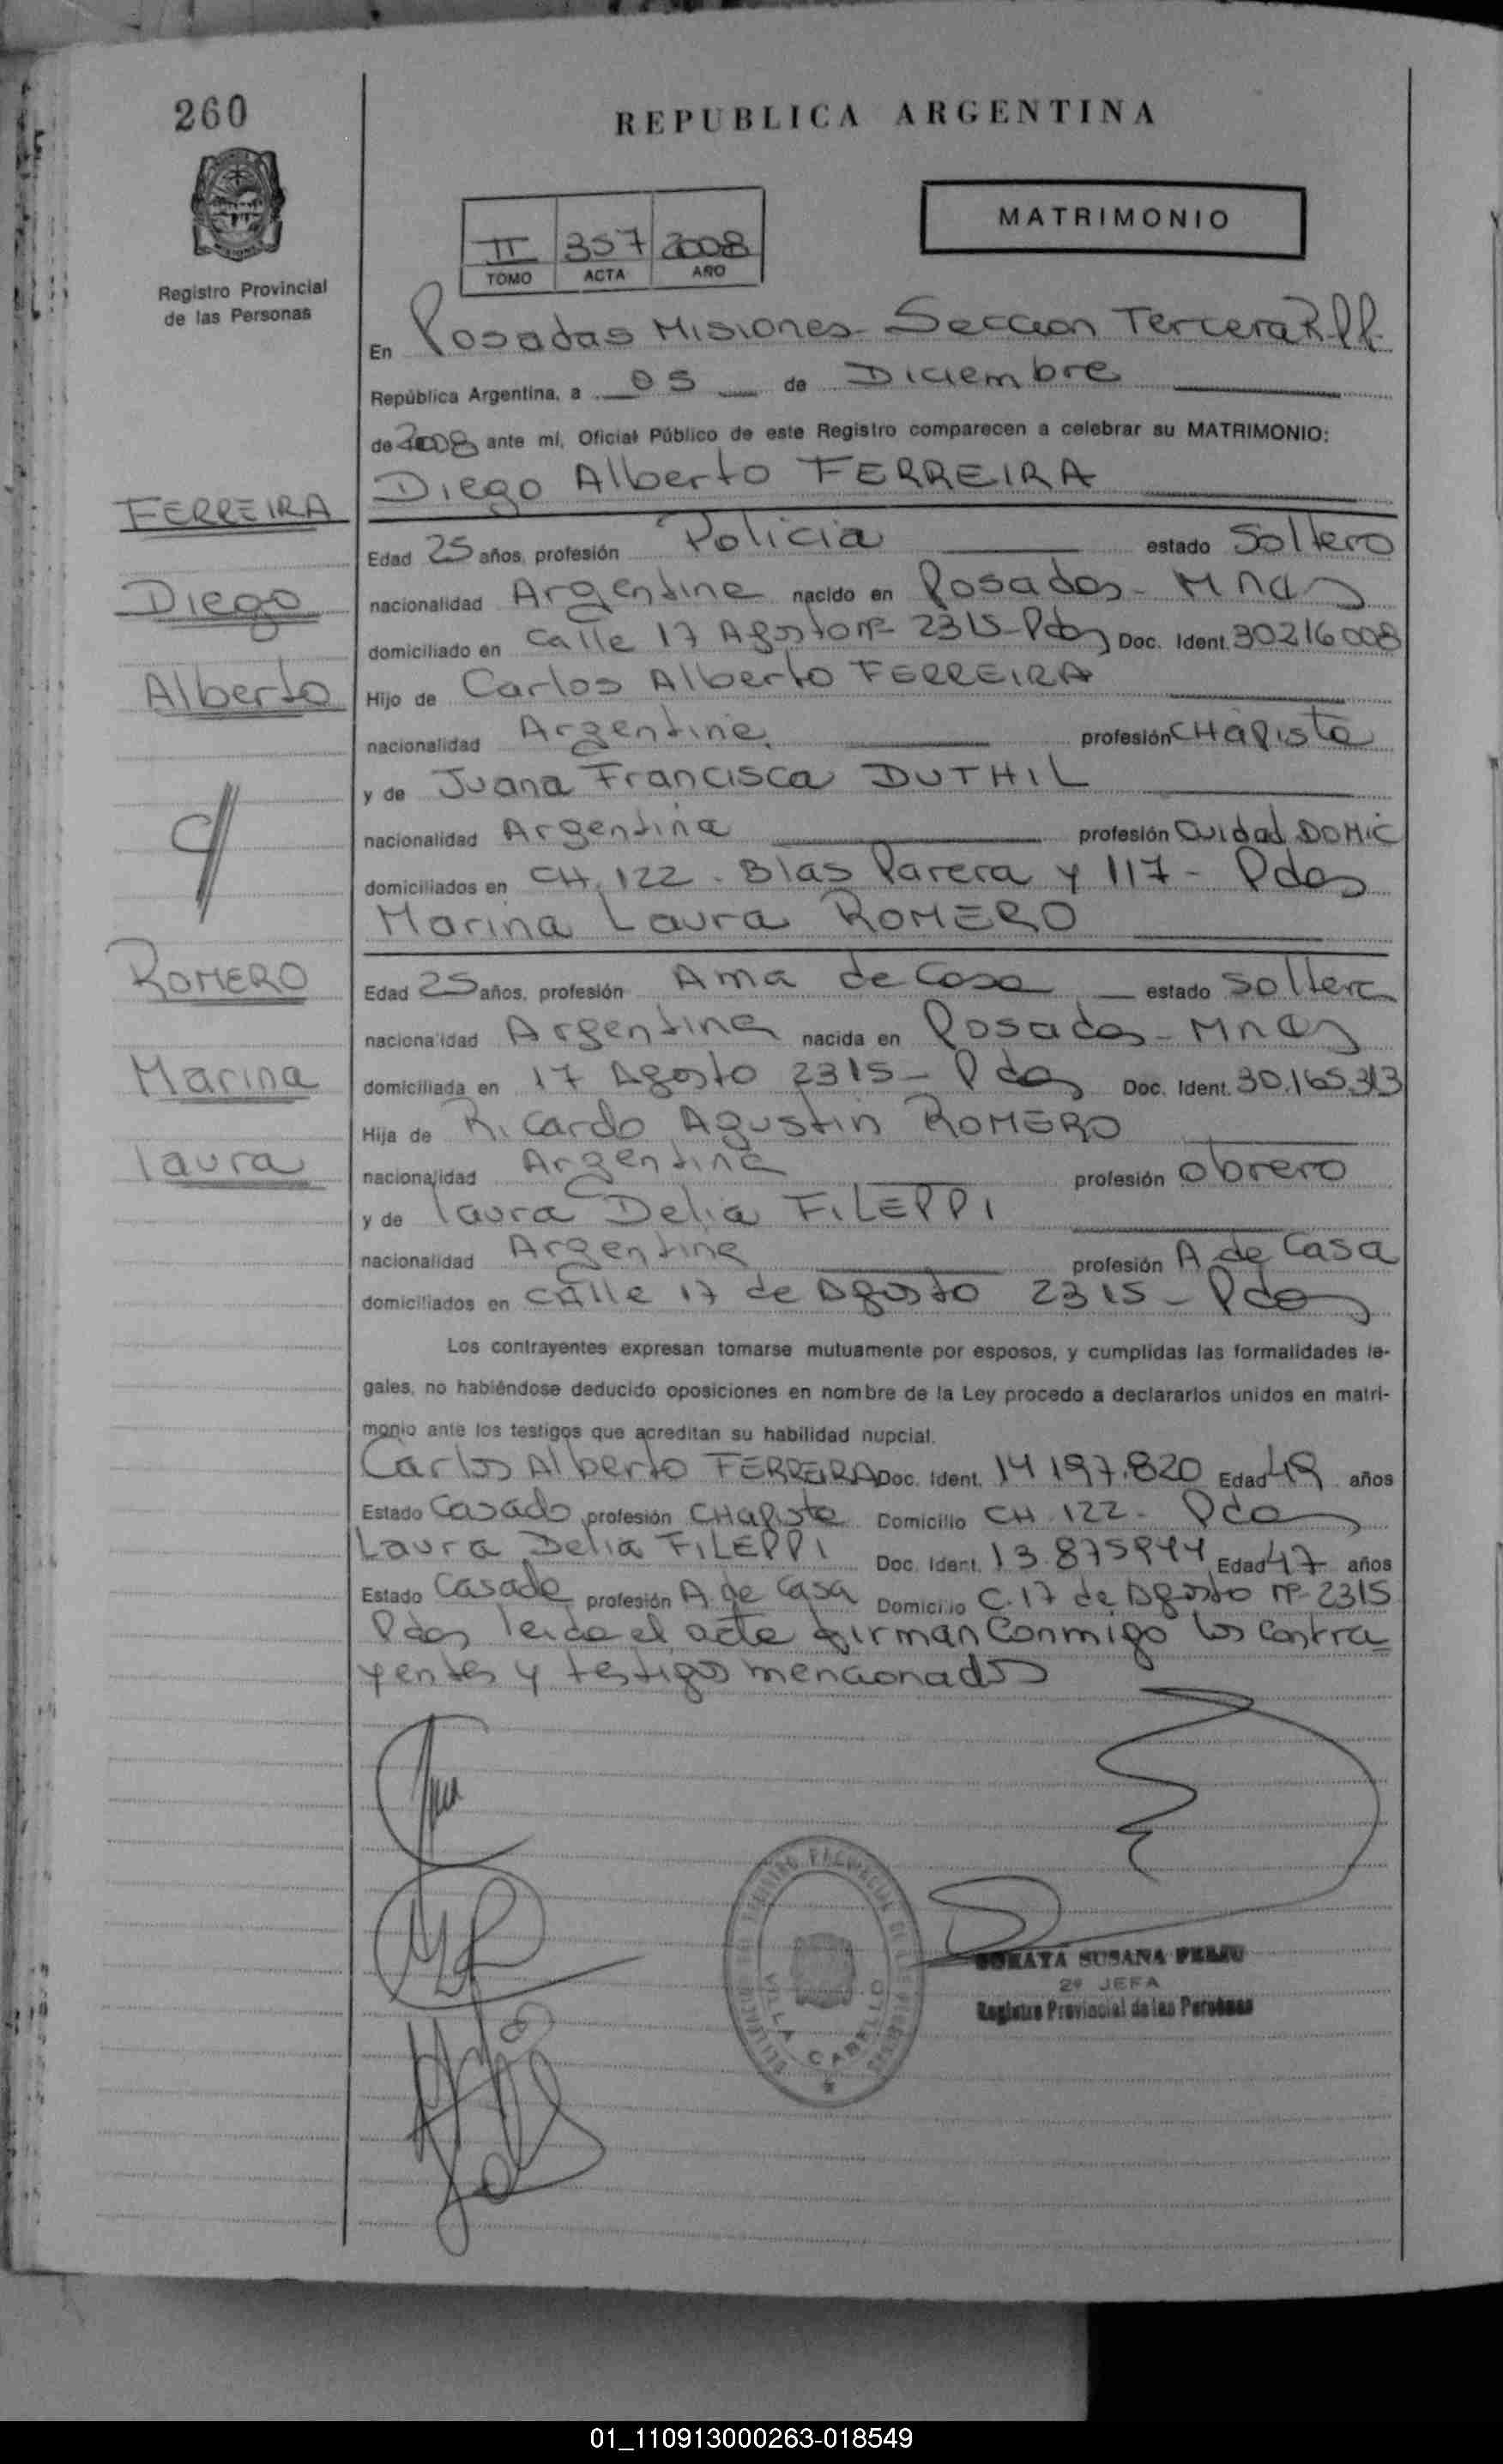 260
REPUBLICA ARGENTINA
MATRIMONIO
II 357 2008
TOMO ACTA AÑO
Registro Provincial
de las Personas
En Posadas Misiones - Seccion Tercera R.P.P.
República Argentina, a 05 de Diciembre
de 2008 ante mí, Oficial Público de este Registro comparecen a celebrar su MATRIMONIO:
Diego Alberto FERREIRA
FERREIRA
Edad 25 años, profesión Policia estado Soltero
Diego
nacionalidad Argentina nacido en Posadas - Mnas
domiciliado en Calle 17 Agosto nº 2315 - Pdas Doc. Ident. 30216008
Alberto
Hijo de Carlos Alberto FERREIRA
nacionalidad Argentina profesión CHapista
y de Juana Francisca DUTHIL
nacionalidad Argentina profesión Cuidad DOMIC
domiciliados en CH. 122 - Blas Parera y 117 - Pdas
y
Marina Laura ROMERO
ROMERO
Edad 25 años, profesión Ama de Casa estado Soltera
nacionalidad Argentina nacida en Posadas - Mnas
Marina
domiciliada en 17 Agosto 2315 - Pdas Doc. Ident. 30.165.313
Hija de Ricardo Agustin ROMERO
Laura
nacionalidad Argentina profesión Obrero
y de Laura Delia FILEPPI
nacionalidad Argentina profesión A de Casa
domiciliados en Calle 17 de Agosto 2315 - Pdas
Los contrayentes expresan tomarse mutuamente por esposos, y cumplidas las formalidades le-
gales, no habiéndose deducido oposiciones en nombre de la Ley procedo a declararlos unidos en matri-
monio ante los testigos que acreditan su habilidad nupcial.
Carlos Alberto FERREIRA Doc. Ident. 14 197.820 Edad 49 años
Estado Casado profesión CHapista Domicilio CH 122 - Pdas
Laura Delia FILEPPI Doc. Ident. 13.875944 Edad 47 años
Estado Casada profesión A de Casa Domicilio C. 17 de Agosto nº 2315
Pdas leida el acta firman Conmigo los Contra
yentes y testigos mencionados
VILLA CABELLO
SUSANA
2ª JEFA
Registro Provincial de las Personas
01_110913000263-018549